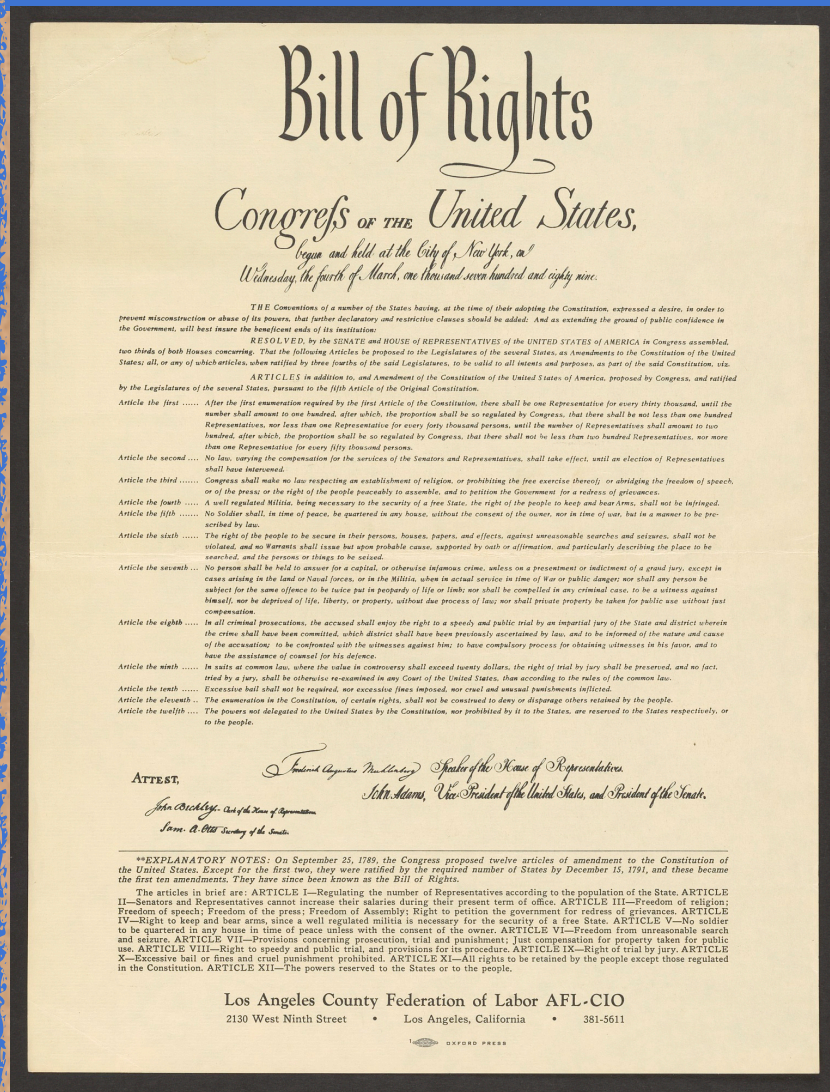 Bill of Rights
Congreſs OF THE United States,
begun and held at the City of New York, on
Wednesday, the fourth of March, one thousand seven hundred and eighty nine.
THE Conventions of a number of the States having, at the time of their adopting the Constitution, expressed a desire, in order to
prevent misconstruction or abuse of its powers, that further declaratory and restrictive clauses should be added: And as extending the ground of public confidence in
the Government, will best insure the beneficent ends of its institution:
RESOLVED, by the SENATE and HOUSE of REPRESENTATIVES of the UNITED STATES of AMERICA in Congress assembled,
two thirds of both Houses concurring. That the following Articles be proposed to the Legislatures of the several States, as Amendments to the Constitution of the United
States; all, or any of which articles, when ratified by three fourths of the said Legislatures, to be valid to all intents and purposes, as part of the said Constitution, viz.
ARTICLES in addition to, and Amendment of the Constitution of the United States of America, proposed by Congress, and ratified
by the Legislatures of the several States, pursuant to the fifth Article of the Original Constitution.
Article the first ...... After the first enumeration required by the first Article of the Constitution, there shall be one Representative for every thirty thousand, until the
number shall amount to one hundred, after which, the proportion shall be so regulated by Congress, that there shall be not less than one hundred
Representatives, nor less than one Representative for every forty thousand persons, until the number of Representatives shall amount to two
hundred, after which, the proportion shall be so regulated by Congress, that there shall not be less than two hundred Representatives, nor more
than one Representative for every fifty thousand persons.
Article the second .... No law, varying the compensation for the services of the Senators and Representatives, shall take effect, until an election of Representatives
shall have intervened.
Article the third ....... Congress shall make no law respecting an establishment of religion, or prohibiting the free exercise thereof; or abridging the freedom of speech,
or of the press; or the right of the people peaceably to assemble, and to petition the Government for a redress of grievances.
Article the fourth ..... A well regulated Militia, being necessary to the security of a free State, the right of the people to keep and bear Arms, shall not be infringed.
Article the fifth ....... No Soldier shall, in time of peace, be quartered in any house, without the consent of the owner, nor in time of war, but in a manner to be pre-
scribed by law.
Article the sixth ...... The right of the people to be secure in their persons, houses, papers, and effects, against unreasonable searches and seizures, shall not be
violated, and no Warrants shall issue but upon probable cause, supported by oath or affirmation, and particularly describing the place to be
searched, and the persons or things to be seized.
Article the seventh ... No person shall be held to answer for a capital, or otherwise infamous crime, unless on a presentment or indictment of a grand jury, except in
cases arising in the land or Naval forces, or in the Militia, when in actual service in time of War or public danger; nor shall any person be
subject for the same offence to be twice put in peopardy of life or limb; nor shall be compelled in any criminal case, to be a witness against
himself, nor be deprived of life, liberty, or property, without due process of law; nor shall private property be taken for public use without just
compensation.
Article the eighth ..... In all criminal prosecutions, the accused shall enjoy the right to a speedy and public trial by an impartial jury of the State and district wherein
the crime shall have been committed, which district shall have been previously ascertained by law, and to be informed of the nature and cause
of the accusation; to be confronted with the witnesses against him; to have compulsory process for obtaining witnesses in his favor, and to
have the assistance of counsel for his defence.
Article the ninth ...... In suits at common law, where the value in controversy shall exceed twenty dollars, the right of trial by jury shall be preserved, and no fact,
tried by a jury, shall be otherwise re-examined in any Court of the United States, than according to the rules of the common law.
Article the tenth ...... Excessive bail shall not be required, nor excessive fines imposed, nor cruel and unusual punishments inflicted.
Article the eleventh .. The enumeration in the Constitution, of certain rights, shall not be construed to deny or disparage others retained by the people.
Article the twelfth .... The powers not delegated to the United States by the Constitution, nor prohibited by it to the States, are reserved to the States respectively, or
to the people.
Frederick Augustus Muhlenberg Speaker of the House of Representatives.
ATTEST,
John Adams, Vice-President of the United States, and President of the Senate.
John Beckley- Clerk of the House of Representatives
Sam. A. Otis Secretary of the Senate.
**EXPLANATORY NOTES: On September 25, 1789, the Congress proposed twelve articles of amendment to the Constitution of
the United States. Except for the first two, they were ratified by the required number of States by December 15, 1791, and these became
the first ten amendments. They have since been known as the Bill of Rights.
The articles in brief are: ARTICLE I—Regulating the number of Representatives according to the population of the State. ARTICLE
II—Senators and Representatives cannot increase their salaries during their present term of office. ARTICLE III—Freedom of religion;
Freedom of speech; Freedom of the press; Freedom of Assembly; Right to petition the government for redress of grievances. ARTICLE
IV—Right to keep and bear arms, since a well regulated militia is necessary for the security of a free State. ARTICLE V—No soldier
to be quartered in any house in time of peace unless with the consent of the owner. ARTICLE VI—Freedom from unreasonable search
and seizure. ARTICLE VII—Provisions concerning prosecution, trial and punishment; Just compensation for property taken for public
use. ARTICLE VIII—Right to speedy and public trial, and provisions for its procedure. ARTICLE IX—Right of trial by jury. ARTICLE
X—Excessive bail or fines and cruel punishment prohibited. ARTICLE XI—All rights to be retained by the people except those regulated
in the Constitution. ARTICLE XII—The powers reserved to the States or to the people.
Los Angeles County Federation of Labor AFL-CIO
2130 West Ninth Street • Los Angeles, California • 381-5611
OXFORD PRESS